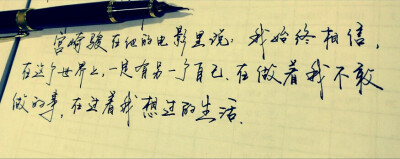 宫崎骏在他的电影里说：我始终相信，
在这个世界上，一定有另一个自己，在做着我不敢
做的事，在过着我想过的生活。